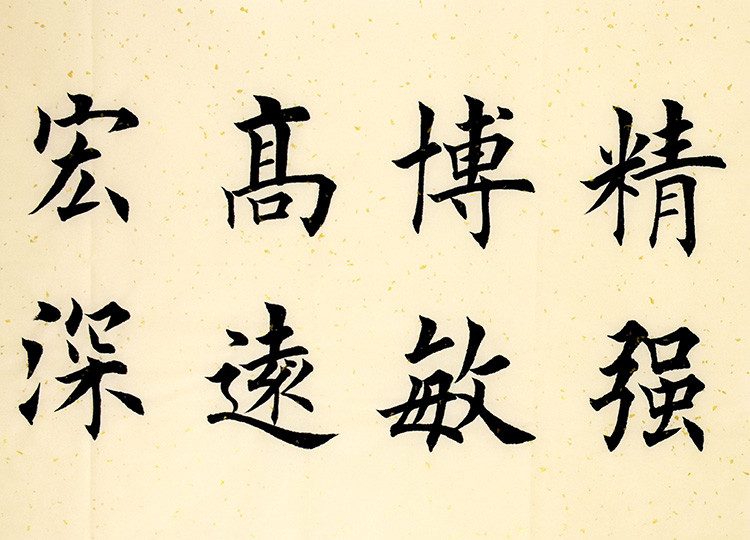 精强
博敏
髙遠
宏深